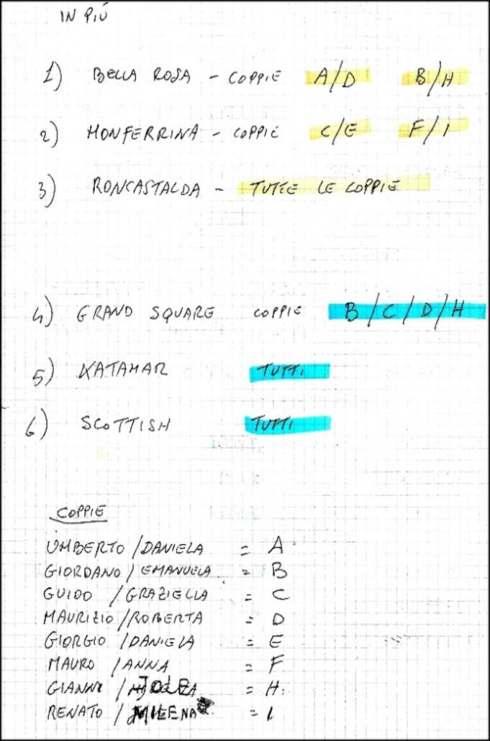 IN PIÙ
1) BELLA ROSA - COPPIE A/D B/H
2) MONFERRINA - COPPIE C/E F/I
3) RONCASTALDA - TUTTE LE COPPIE
4) GRAND SQUARE COPPIE B/C/D/H
5) KATAMAR TUTTI
6) SCOTTISH TUTTI
COPPIE
UMBERTO/DANIELA = A
GIORDANO/EMANUELA = B
GUIDO/GRAZIELLA = C
MAURIZIO/ROBERTA = D
GIORGIO/DANIELA = E
MAURO/ANNA = F
GIANNI/JOLE = H
RENATO/MILENA = I